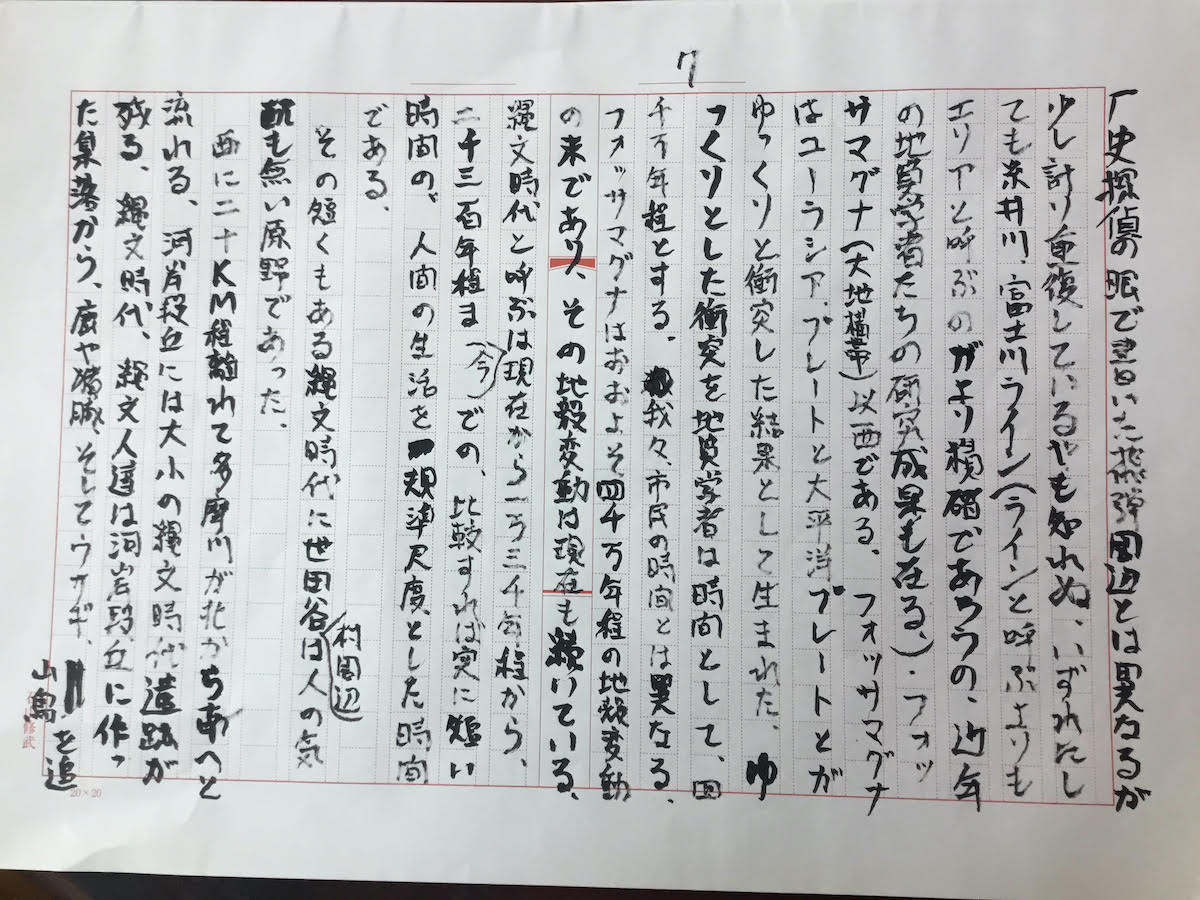 7
厂史探偵の眼で書いた飛弾周辺とは異なるが
少し計り重復しているやも知れぬ、いずれたし
ても糸井川、富士川ライン(ラインと呼ぶよりも
エリアと呼ぶのがより精確であろうの、近年
の地質学者たちの研究成果も在る。)・フォッ
サマグナ(大地構帯)以西である。フォッサマグナ
はユーラシア、プレートと大平洋プレートとが
ゆっくりと衝突した結果として生まれた、ゆ
っくりとした衝突を地質学者は時間として、四
千万年程とする。我々、市民の時間とは異なる。
フォッサマグナはおおよそ四千万年程の地殻変動
の末であり、その地殻変動は現在も続いている、
縄文時代と呼ぶは現在から一万三千年程から、
二千三百年程ま(今)での、比較すれば実に短い
時間の、人間の生活を規準尺度、とした時間
である、
その短くもある縄文時代に世田谷村周辺は人の気
配も無い原野であった、
西に二十KM程離れて多摩川が北から南へと
流れる、河岸段丘には大小の縄文時代遺跡が
残る、縄文時代、縄文人達は河岸段丘に作っ
た集落から、鹿や猪、そしてウサギ、山鳥を追
修武
20×20